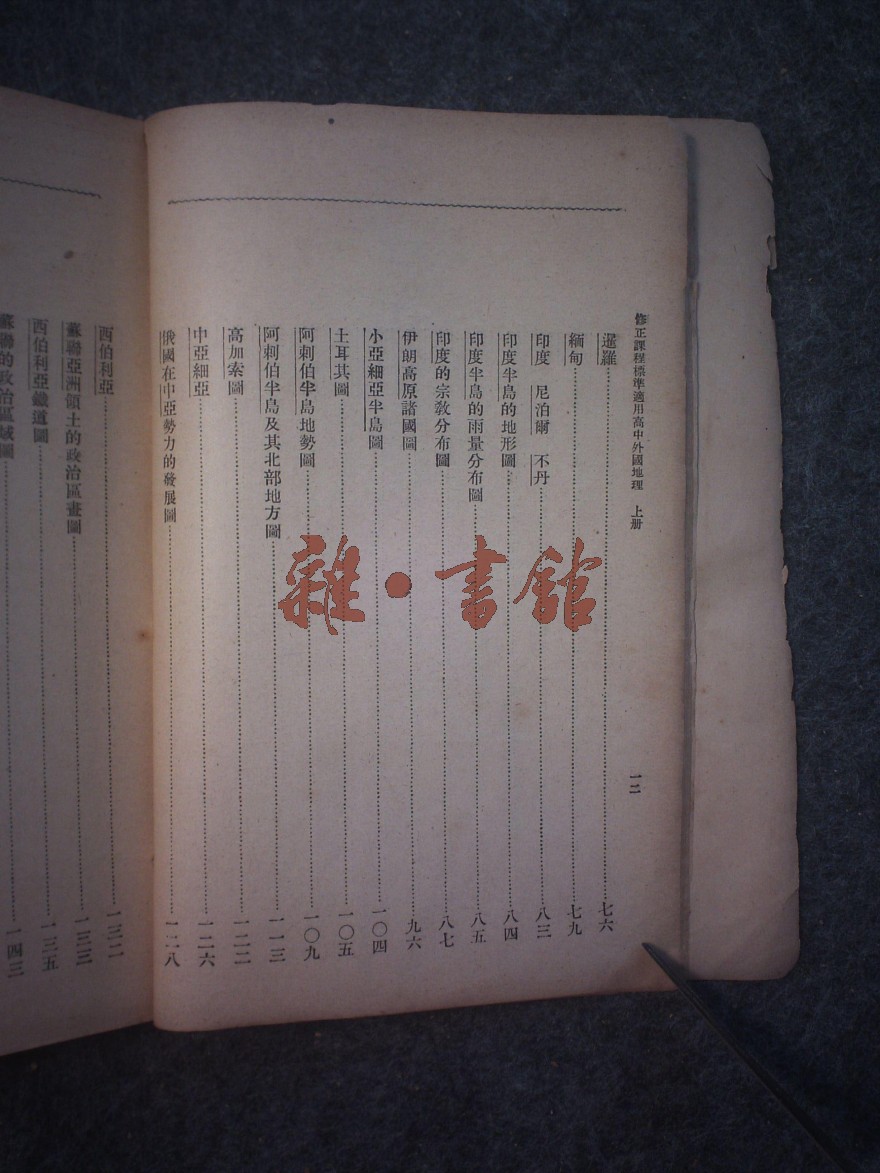 修正課程標準適用高中外國地理 上册
一二
暹羅⋯⋯七六
緬甸⋯⋯七九
印度 尼泊爾 不丹⋯⋯八三
印度半島的地形圖⋯⋯八四
印度半島的雨量分布圖⋯⋯八五
印度的宗教分布圖⋯⋯八七
伊朗高原諸國圖⋯⋯九六
小亞細亞半島圖⋯⋯一〇四
土耳其圖⋯⋯一〇五
阿剌伯半島地勢圖⋯⋯一〇九
阿剌伯半島及其北部地方圖⋯⋯一一三
高加索圖⋯⋯一二二
中亞細亞⋯⋯一二六
俄國在中亞勢力的發展圖⋯⋯一二八
西伯利亞⋯⋯一三二
蘇聯亞洲領土的政治區畫圖⋯⋯一三三
西伯利亞鐵道圖⋯⋯一三五
蘇聯的政治區域圖⋯⋯一四三
雜·書館